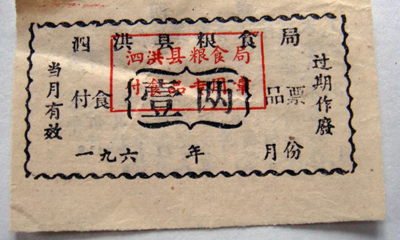 泗洪县粮食局
泗洪县粮食局
付食品专用章
当月有效
付食
壹两
品票
过期作廢
一九六 年 月份